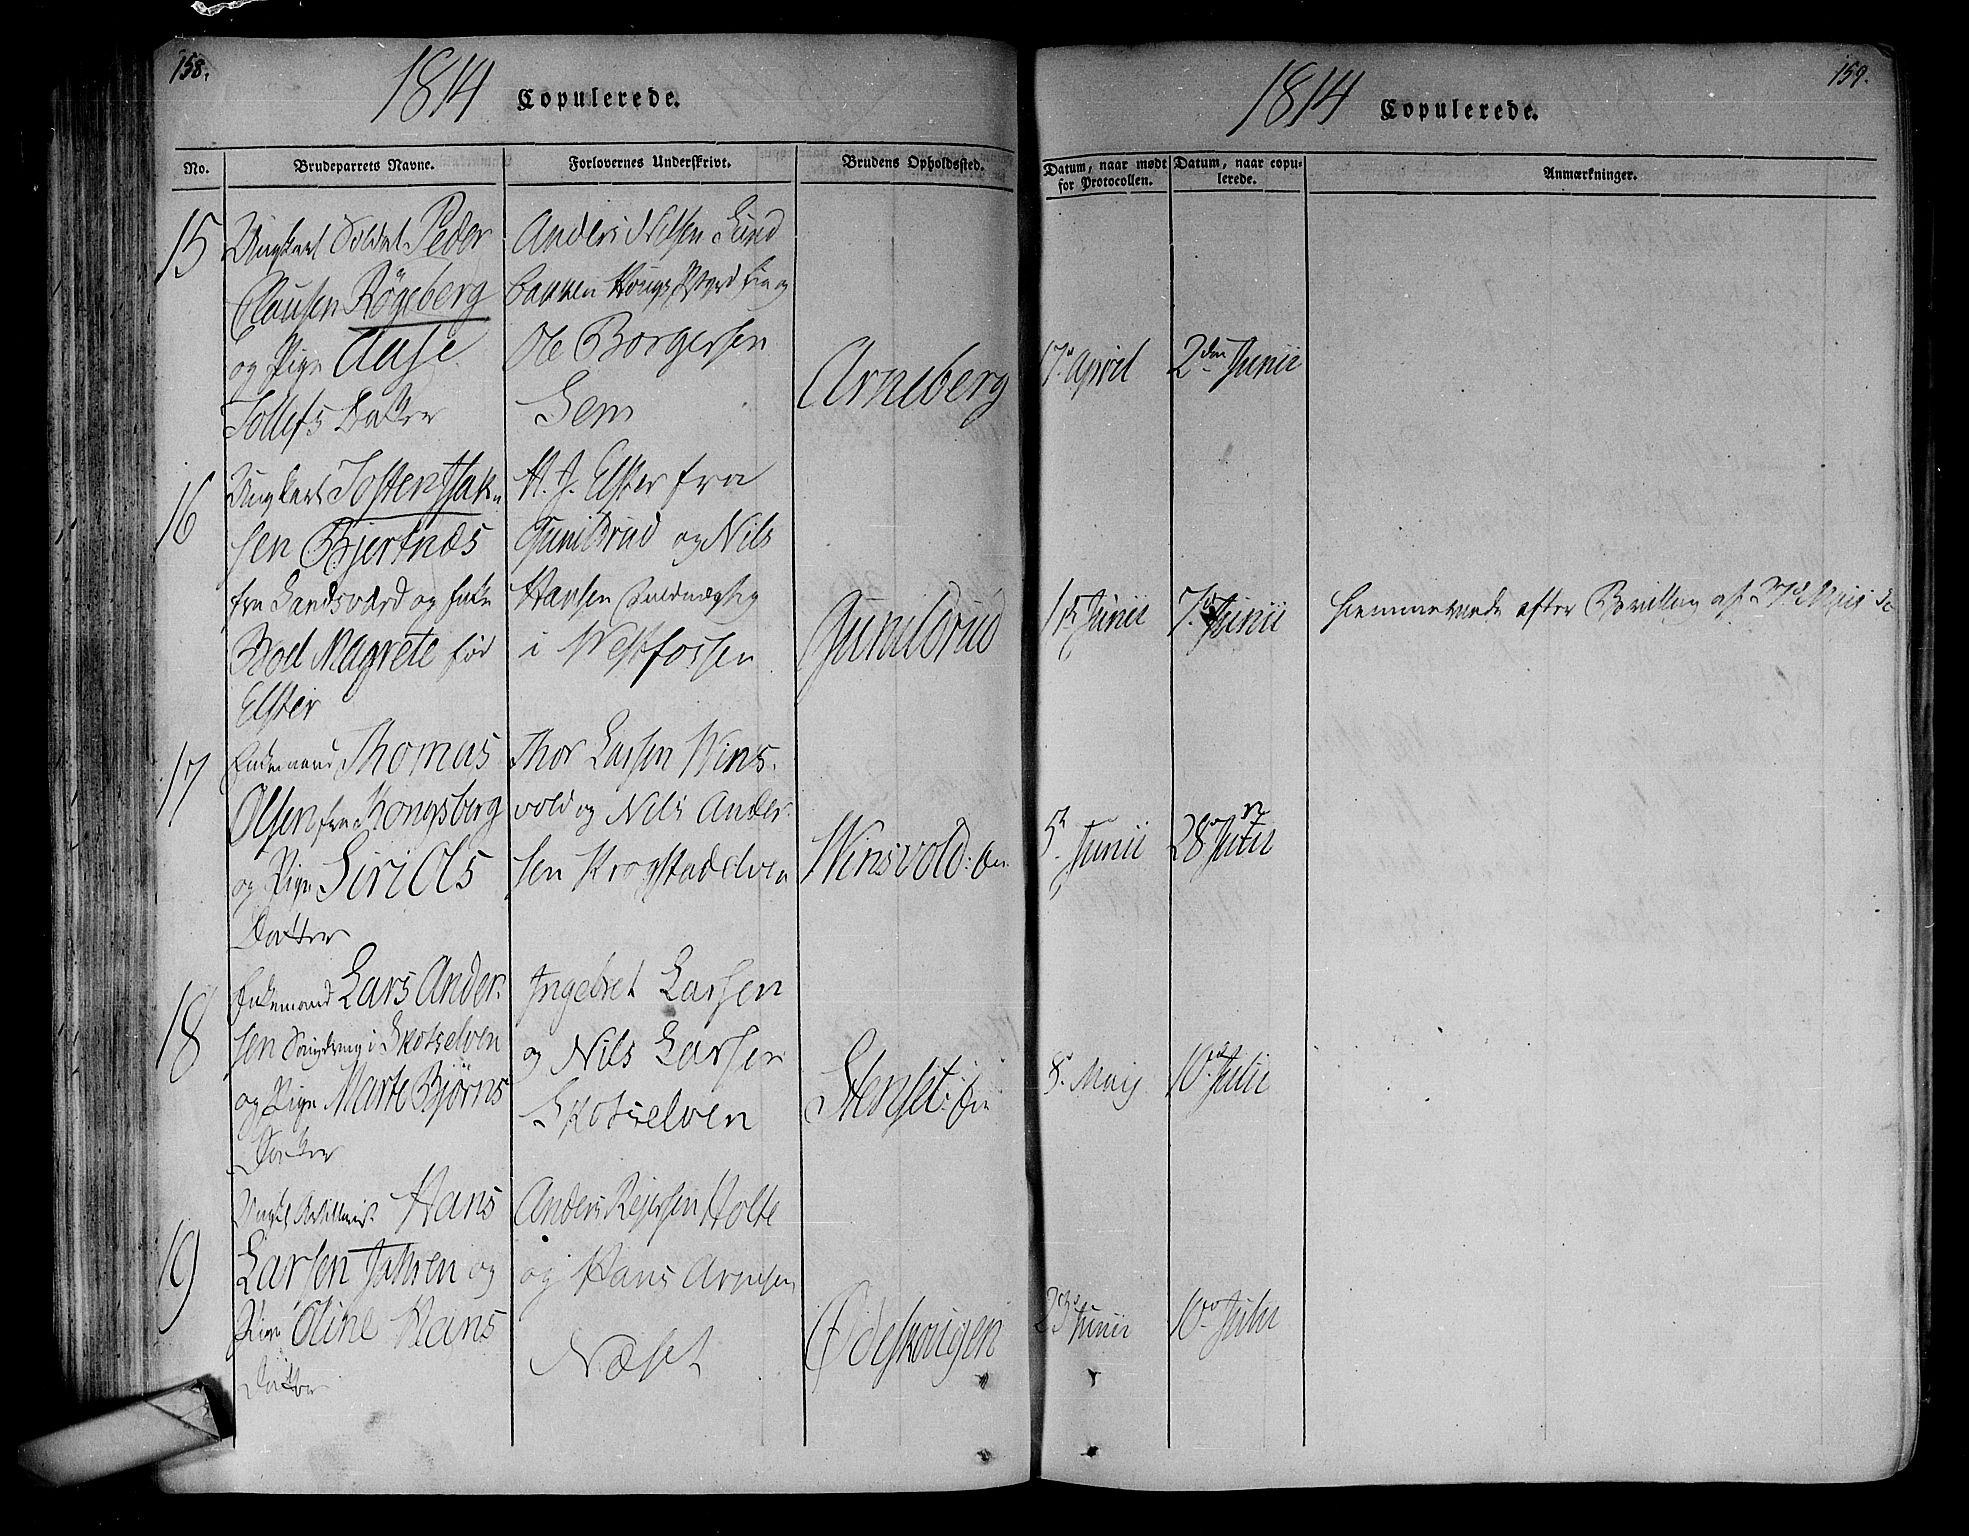 158.
1814 Copulerede.
No. Brudeparrets Navne. Forlovernes Underskrivt. Brudens Opholdssted.
15
Ungkarl Soldat Peder
Clausen Røgeberg
og Pige Aase
Tollefs Datter
Anders Nilsen Lund
bakken
Ole Borgersen
Sem
Arneberg
16
Ungkarl Tosten Isak
sen Bjertnæs
fra Sandsværd og Enke
Bod Magrete fød
Elster
H. J. Elster fra
Gunilbrud og Nils
Hansen
i Westfossen
Gunilbrud
17
Enkemand Thomas
Olsen fra Kongsberg
og Pige Siri Ols
Datter
Thor Larsen Wins-
vold og Nils Ander-
sen Krogstadelven
Winsvold:
18
Enkemand Lars Ander-
sen i Skotselven
og Pige Marte Bjørns
Datter
Ingebret Larsen
og Nils Larsen
Skotselven
Stenset:
19
Hans
Larsen Jahren og
Pige Oline Hans
Datter
Anders Rejersen Holte
og Hans Arnesen
Næset
Ødeskougen
159.
1814 Copulerede.
Datum, naar mødt for Protocollen. Datum, naar copulerede. Anmærkninger.
17. April 2den Junii
1ste Junii 7. Junii Hiemmeviede efter Bevilling af
5te Junii 28. Junii
8. Maij 10. Julii
23 Junii 10. Julii